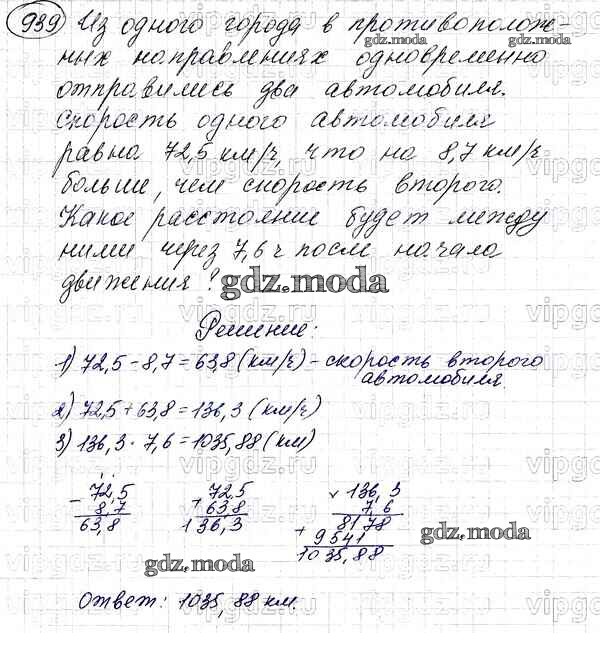 939 Из одного города в противополож-
gdz.moda
ных направлениях одновременно
gdz.moda
отправились два автомобиля.
Скорость одного автомобиля
равна 72,5 км/ч, что на 8,7 км/ч
больше, чем скорость второго.
Какое расстояние будет между
ними через 7,6 ч после начала
движения?
gdz.moda
Решение:
1) 72,5 - 8,7 = 63,8 (км/ч) - скорость второго
автомобиля.
2) 72,5 + 63,8 = 136,3 (км/ч)
3) 136,3 · 7,6 = 1035,88 (км)
- 72,5
8,7
63,8
+ 72,5
63,8
136,3
× 136,3
7,6
8178
+ 9541
1035,88
gdz.moda
gdz.moda
Ответ: 1035,88 км.
vipgdz.ru